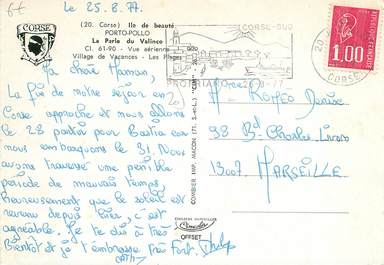 le 25.8.77.
(20. Corse) Ile de beauté
PORTO-POLLO
La Perle du Valinco
Cl. 61-90 - Vue aérienne
Village de Vacances - Les Plages
CORSE
CORSE-SUD
PROPRIANO
1,00
CORSE
Ma chère Maman,
La fin de notre séjour en
Corse approche et nous allons
le 28 partir pour Bastia car
nous embarquons le 31. Nous
avons traversé une pénible
période de mauvais temps,
heureusement que le soleil est
revenu depuis hier, c'est
agréable. Je te dis à très
Bientôt et je t'embrasse très Fort.
COMBIER IMP. MACON (71. S.-et-L.)
OFFSET
ROMÉO Denise
98 Bd Charles Livon
13007 MARSEILLE